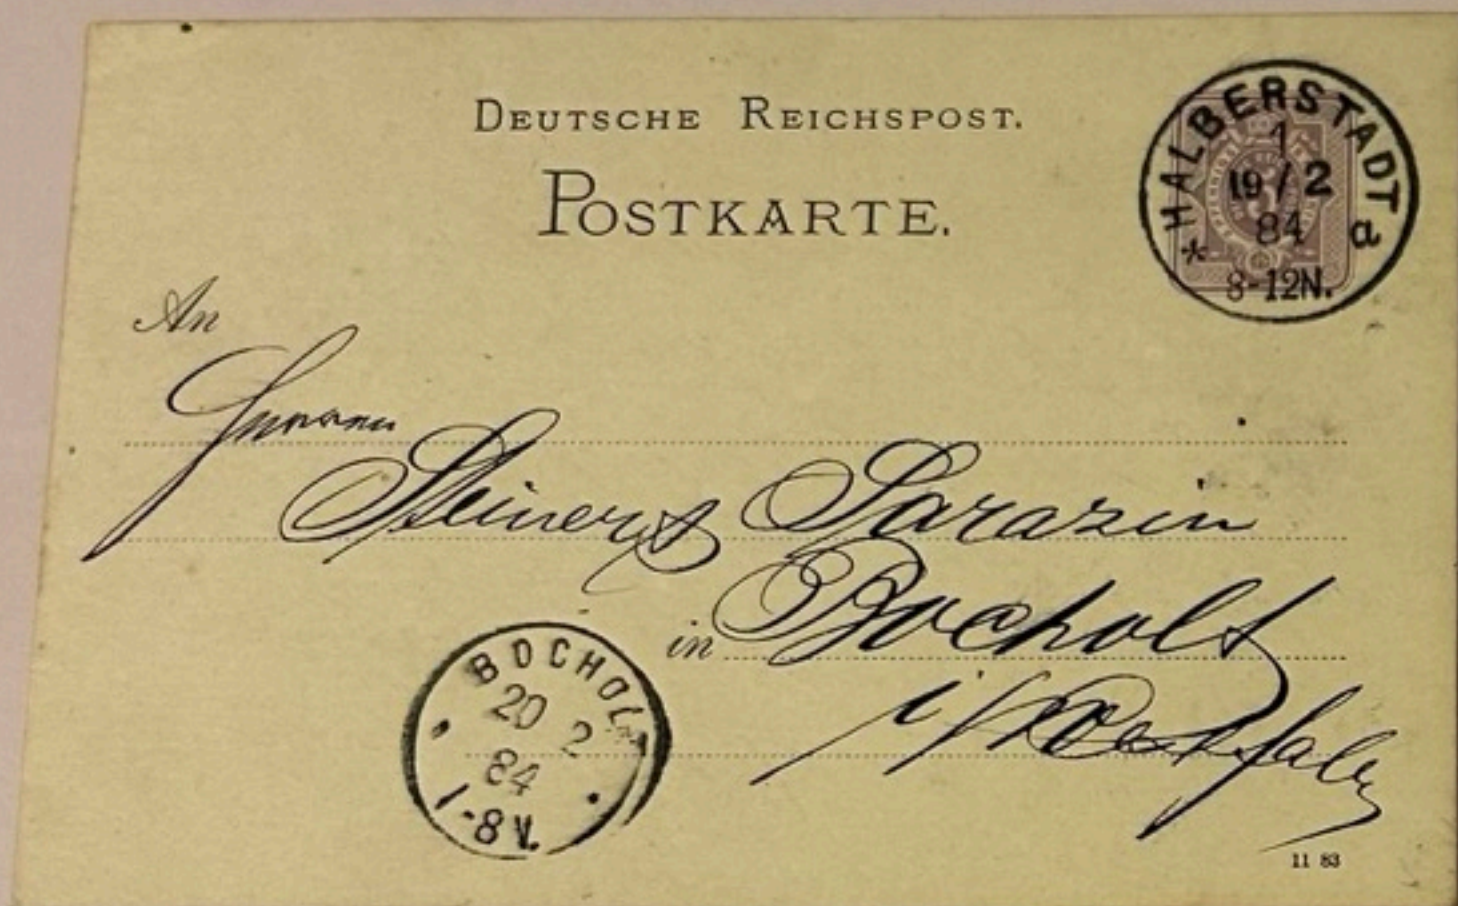 DEUTSCHE REICHSPOST.
POSTKARTE.
HALBERSTADT
1
19/2
84
* a
8-12N.
An
Herren
Steiners Sarazin
in Bocholt
i/Westfalen
BOCHOLT
20 2
84
1-8 V.
11 83